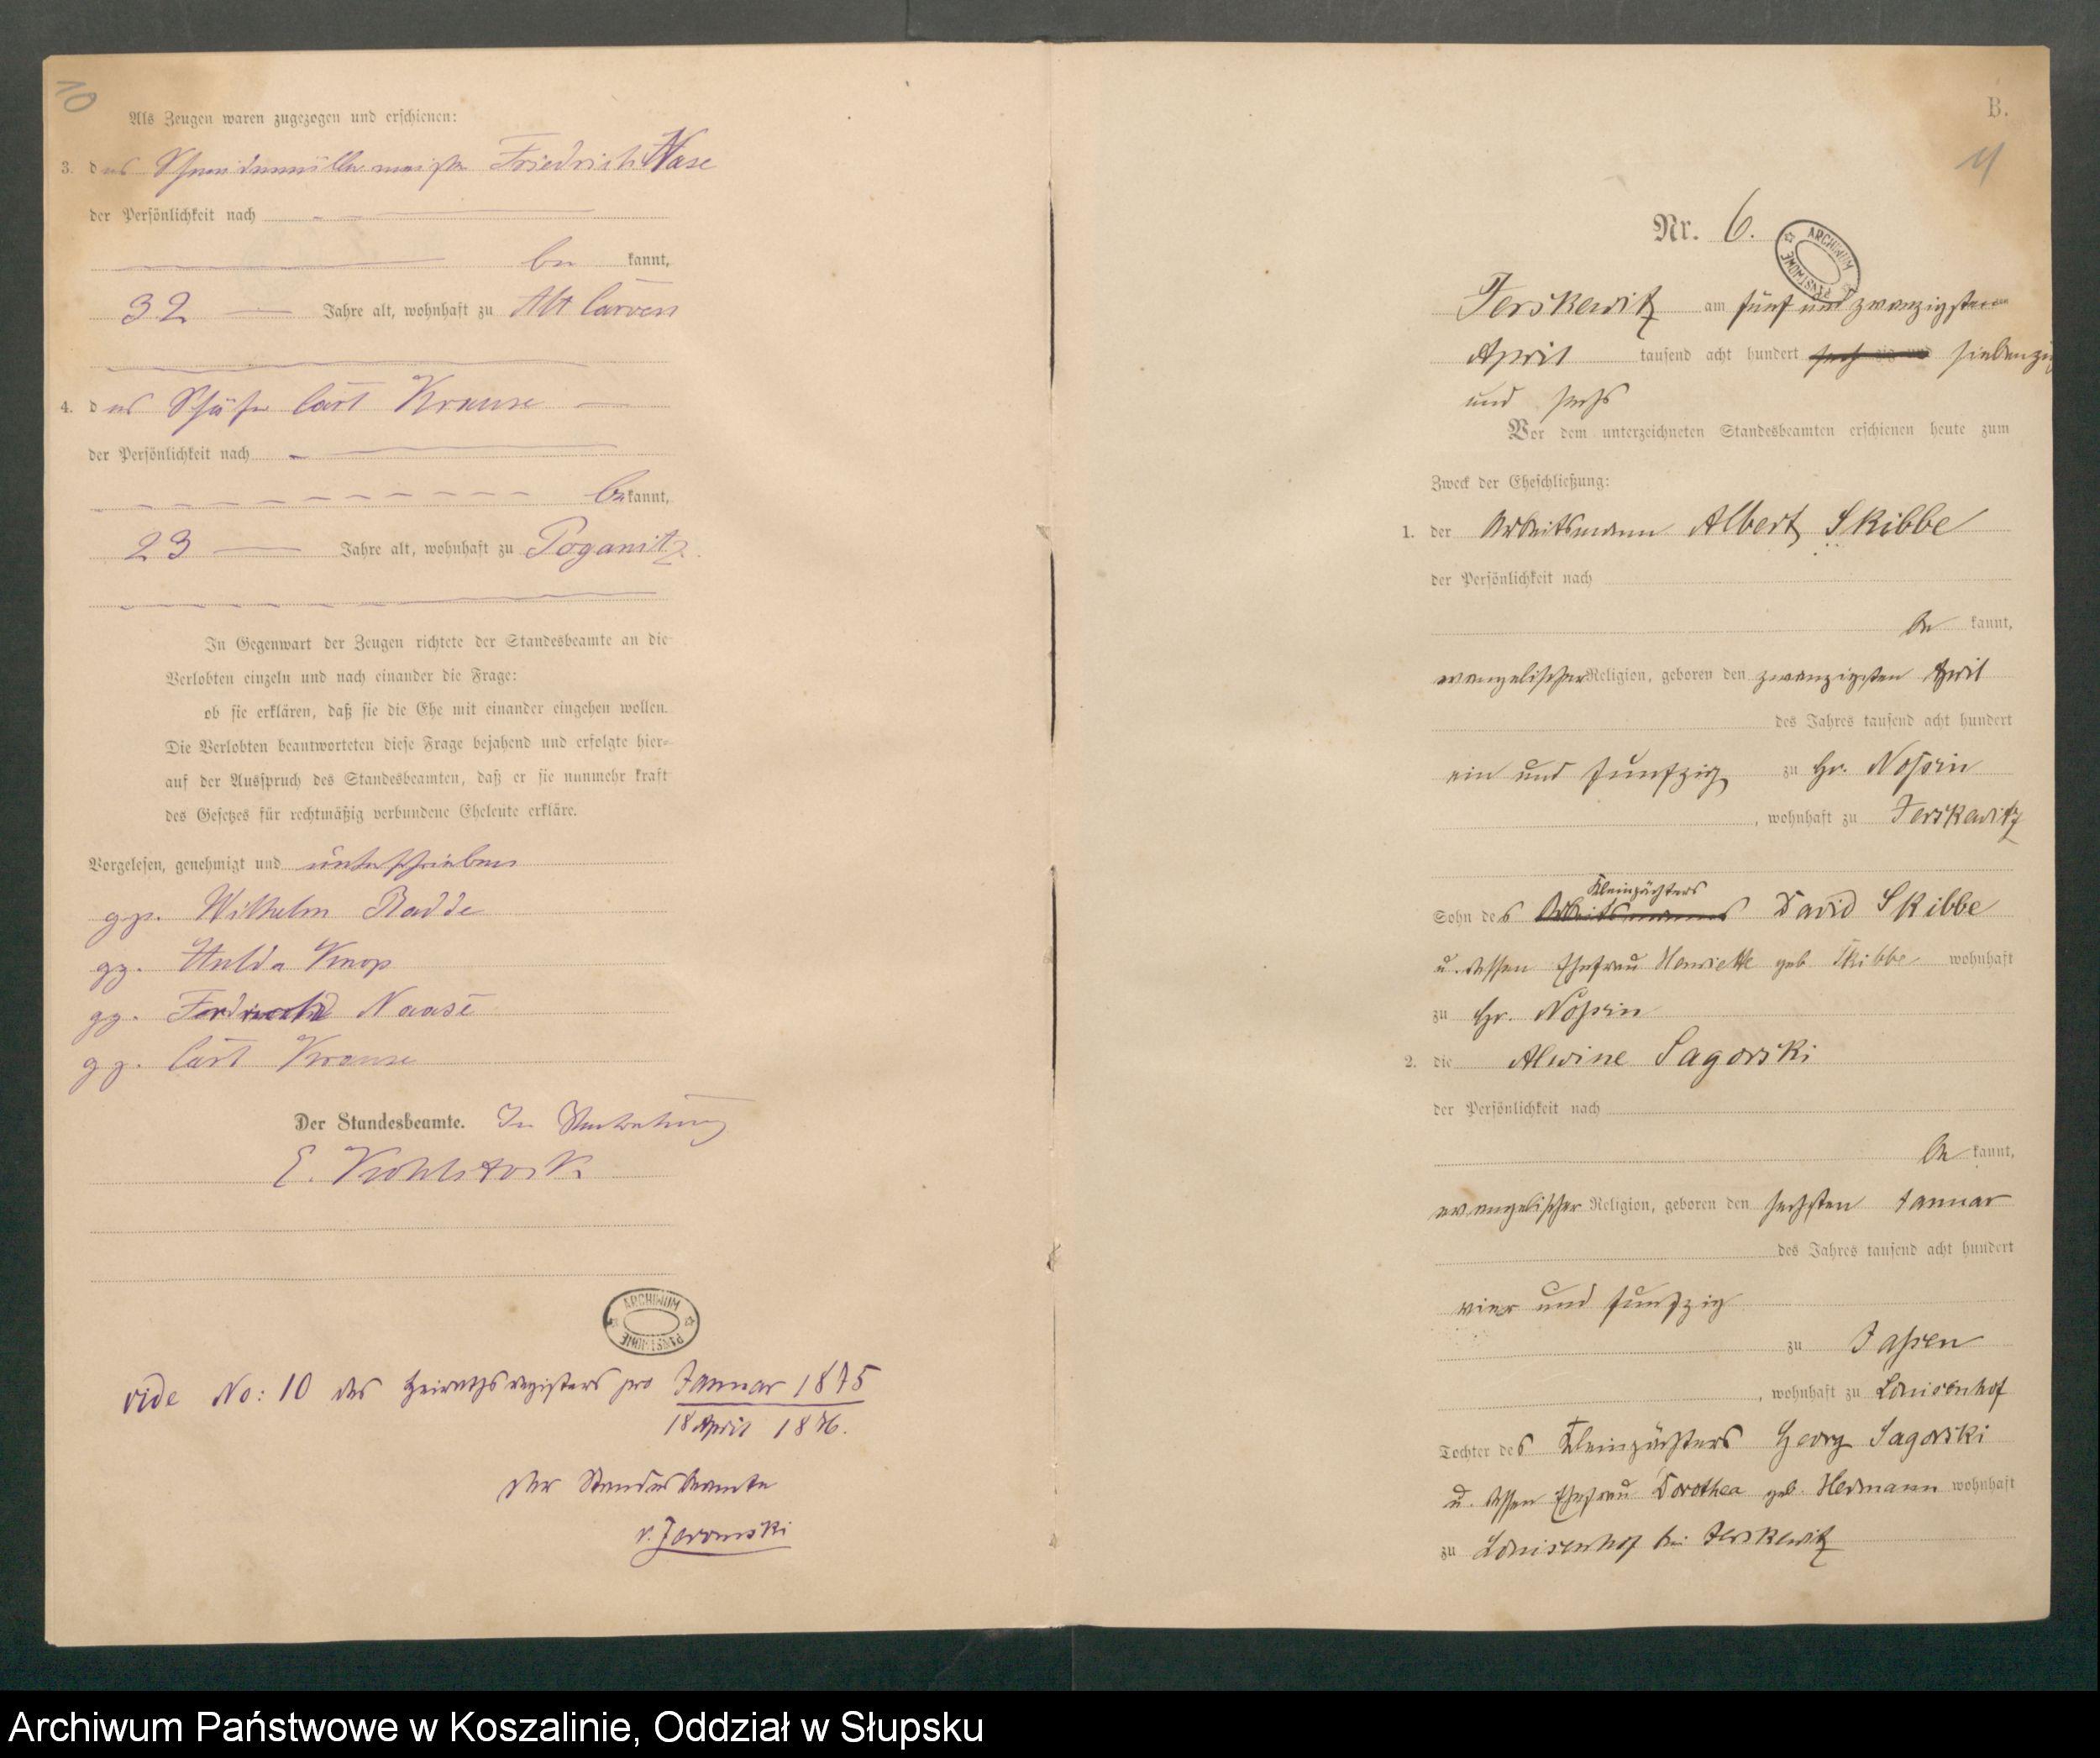 10
Als Zeugen waren zugezogen und erschienen:
3. der Schneidemüllermeister Friedrich Nase
der Persönlichkeit nach
be kannt,
32 Jahre alt, wohnhaft zu Alt
4. der Schäfer Carl Krause
der Persönlichkeit nach
bekannt,
23 Jahre alt, wohnhaft zu Poganitz.
In Gegenwart der Zeugen richtete der Standesbeamte an die
Verlobten einzeln und nach einander die Frage:
ob sie erklären, daß sie die Ehe mit einander eingehen wollen.
Die Verlobten beantworteten diese Frage bejahend und erfolgte hier-
auf der Ausspruch des Standesbeamten, daß er sie nunmehr kraft
des Gesetzes für rechtmäßig verbundene Eheleute erkläre.
Vorgelesen, genehmigt und unterschrieben
gz. Wilhelm Radde
gz. Hulda Knop
gz. Naase
gz. Carl Krause
Der Standesbeamte. In Vertretung
E. Kohlstock
ARCHIWUM PAŃSTWOWE
vide No: 10 des Heirathsregisters pro Januar 1875
18 April 1876.
Der Standesbeamte
B.
11
Nr. 6.
ARCHIWUM PAŃSTWOWE
Jerskewitz am fünf und zwanzigsten
April tausend acht hundert siebenzig
und sechs
Vor dem unterzeichneten Standesbeamten erschienen heute zum
Zweck der Eheschließung:
1. der Arbeitsmann Albert Skibbe
der Persönlichkeit nach
be kannt,
evangelischer Religion, geboren den zwanzigsten April
des Jahres tausend acht hundert
ein und funfzig zu Gr. Nossin
, wohnhaft zu Jerskewitz
Kleinpächters
Sohn des Arbeitsmanns David Skibbe
u. dessen Ehefrau Henriette geb Skibbe wohnhaft
zu Gr. Nossin
2. die Alwine Sagorski
der Persönlichkeit nach
be kannt,
evangelischer Religion, geboren den sechsten Januar
des Jahres tausend acht hundert
vier und funfzig
zu Jassen
, wohnhaft zu Louisenhof
Tochter des Kleinpächters Georg Sagorski
u. dessen Ehefrau Dorothea geb. Hermann wohnhaft
zu Louisenhof bei Jerskewitz
Archiwum Państwowe w Koszalinie, Oddział w Słupsku